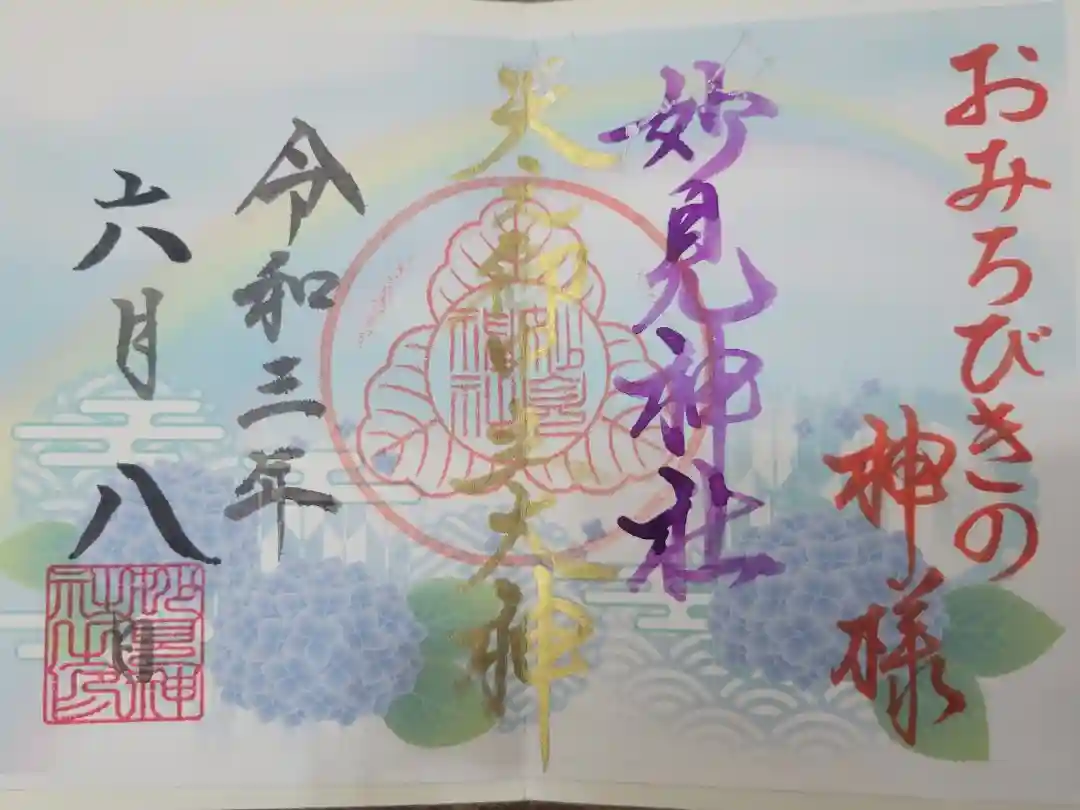 おみちびきの
神様
妙見神社
天之御中主大神
妙見
神社
令和三年
六月八日